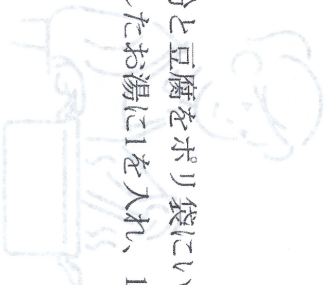 と豆腐をポリ袋にい
たお湯に1を入れ、1